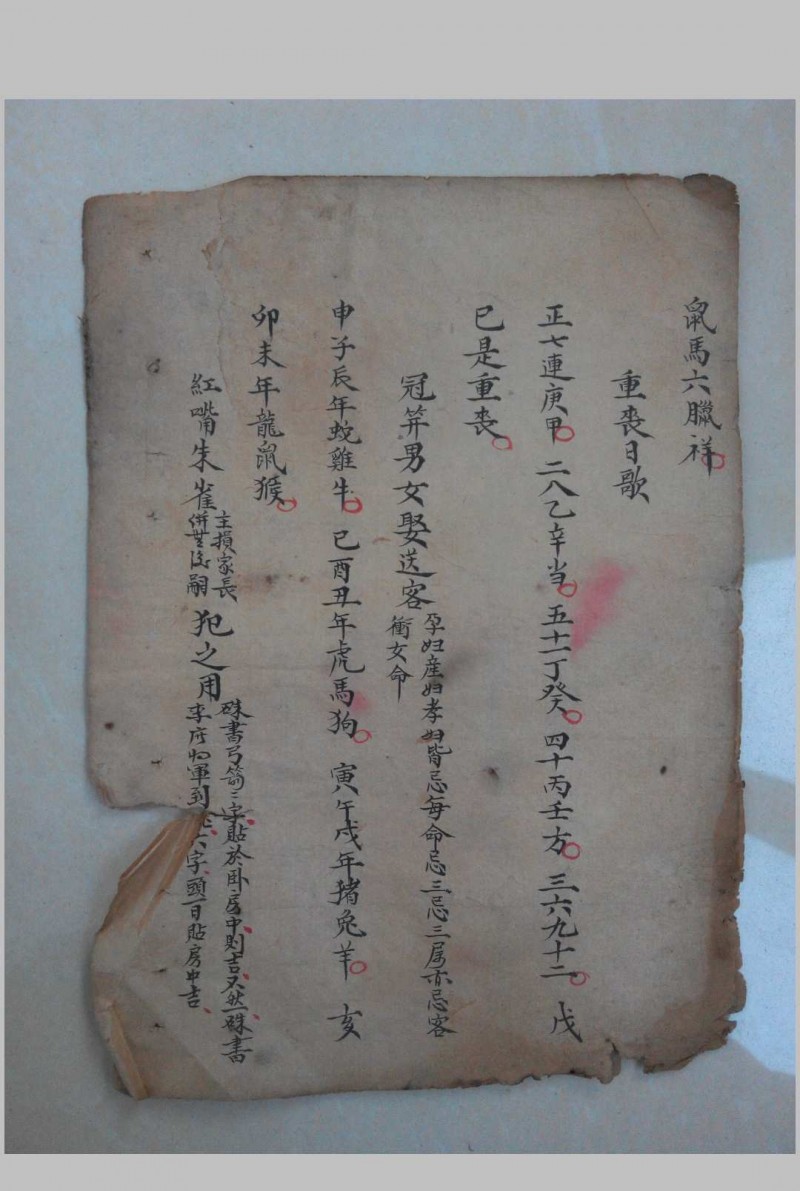 鼠馬六臘祥
重丧日歌
正七連庚甲 二八乙辛当 五十一丁癸 四十丙壬方 三六九十二 戊
巳是重丧
冠笄男女娶送客
孕妇産妇孝妇皆忌每命忌三忌三属亦忌客
衝女命
申子辰年蛇雞牛 巳酉丑年虎馬狗 寅午戌年猪兔羊 亥
卯未年龍鼠猴
紅嘴朱雀
主損家長
併無後嗣
犯之用
硃書弓箭二字貼於卧房中則吉又然硃書
李府將軍到六字頭一日貼房中吉